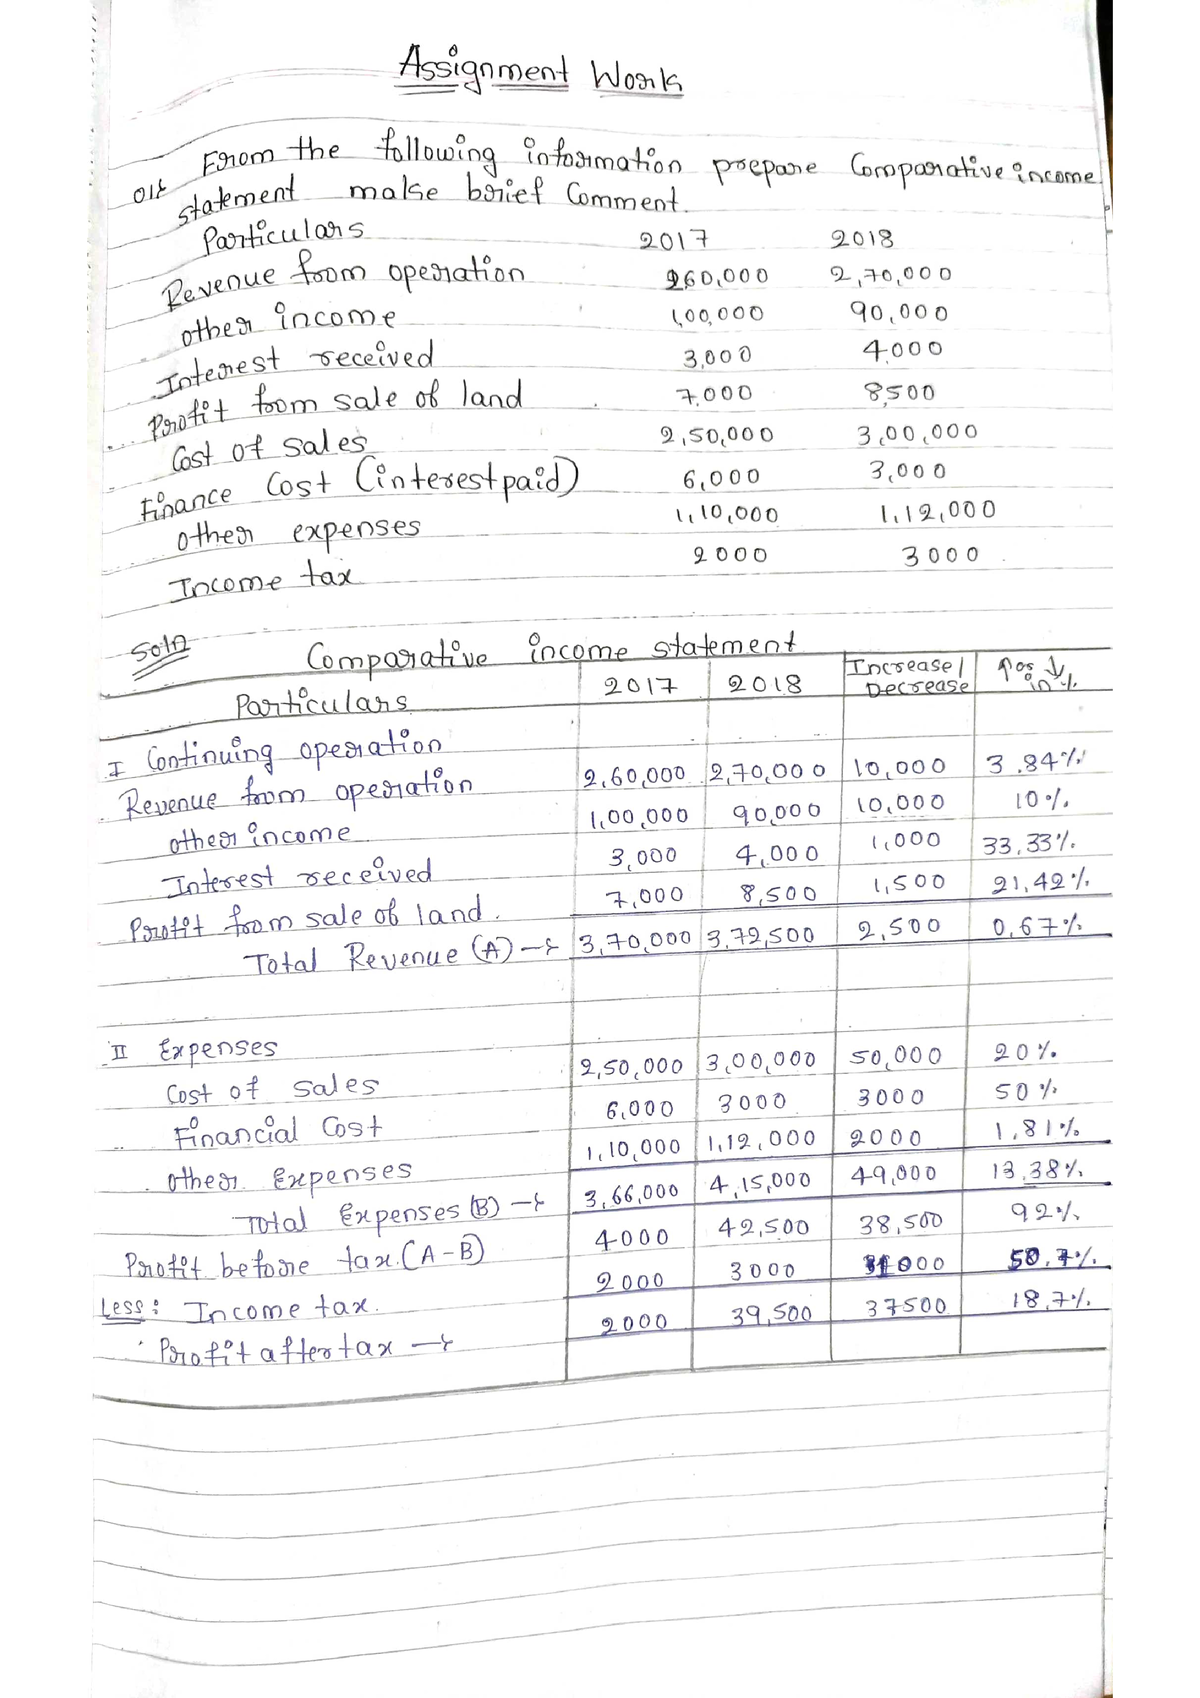 Assignment Work
01* From the following information prepare Comparative income
statement make brief Comment.
Particulars 2017 2018
Revenue from operation 260,000 2,70,000
other income 1,00,000 90,000
Interest received 3,000 4000
Profit from sale of land 7,000 8,500
Cost of sales 2,50,000 3,00,000
Finance Cost (interest paid) 6,000 3,000
other expenses 1,10,000 1,12,000
Income tax 2000 3000
Soln Comparative income statement
Particulars 2017 2018 Increase/ Decrease ↑or ↓ in %
I Continuing operation
Revenue from operation 2,60,000 2,70,000 10,000 3.84%
other income 1,00,000 90,000 10,000 10%
Interest received 3,000 4,000 1,000 33.33%
Profit from sale of land. 7,000 8,500 1,500 21,42%
Total Revenue (A) → 3,70,000 3,72,500 2,500 0.67%
II Expenses
Cost of sales 2,50,000 3,00,000 50,000 20%
Financial Cost 6,000 3000 3000 50%
other Expenses 1,10,000 1,12,000 2000 1.81%
Total Expenses (B) → 3,66,000 4,15,000 49,000 13,38%
Profit before tax.(A-B) 4000 42,500 38,500 92%
Less: Income tax. 2000 3000 50.7%
Profit after tax → 2000 39,500 37500 18.7%